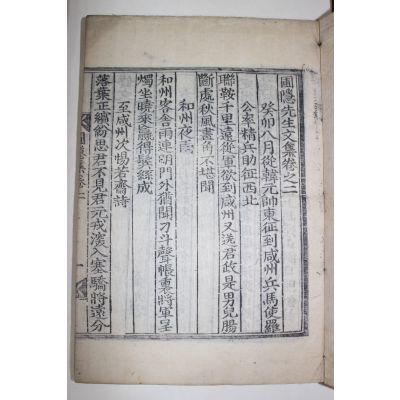 圃隱先生文集卷之二
癸卯八月從韓元帥東征到咸州兵馬使羅
公率精兵助征西北
聯鞍千里遠從軍欲到咸州又送君政是男兒腸
斷處秋風畫角不堪聞
和州夜雨
和州客舍雨連明門外猶聞刀斗聲帳裏將軍呈
燭坐曉來贏得鬢絲成
至咸州次惕若齋詩
落葉正繽紛思君不見君元戎深入塞驕將遠分